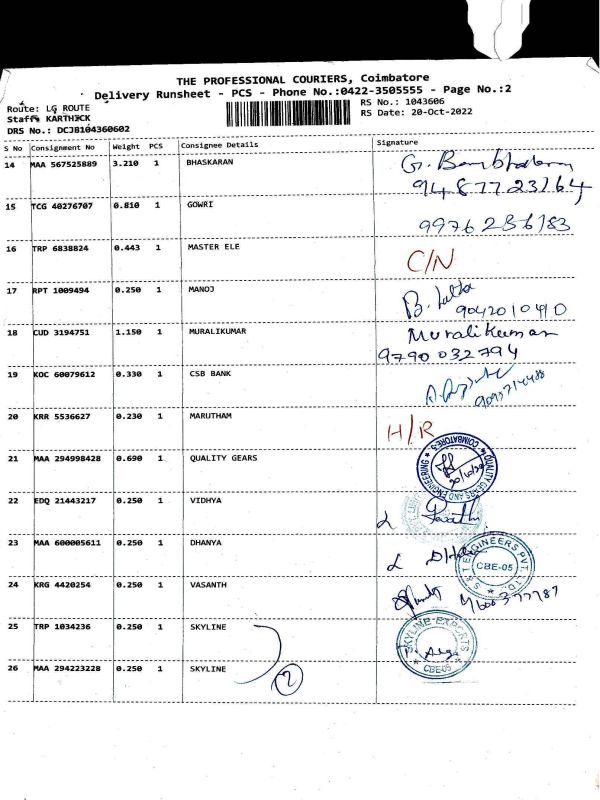 THE PROFESSIONAL COURIERS, Coimbatore
Delivery Runsheet - PCS - Phone No.:0422-3505555 - Page No.:2
Route: LG ROUTE
RS No.: 1043606
Staff: KARTHICK
RS Date: 20-Oct-2022
DRS No.: DCJB104360602
S No Consignment No Weight PCS Consignee Details Signature
14 MAA 567525889 3.210 1 BHASKARAN
15 TCG 40276707 0.810 1 GOWRI
9976286183
16 TRP 6838824 0.443 1 MASTER ELE C/N
17 RPT 1009494 0.250 1 MANOJ B. Latha
9042010410
18 CUD 3194751 1.150 1 MURALIKUMAR Muralikumar
9790032794
19 KOC 60079612 0.330 1 CSB BANK
20 KRR 5536627 0.230 1 MARUTHAM H/R
21 MAA 294998428 0.690 1 QUALITY GEARS QUALITY GEARS AND ENGINEERING COIMBATORE-5
20/10/22
22 EDQ 21443217 0.250 1 VIDHYA
23 MAA 600005611 0.250 1 DHANYA S & T ENGINEERS PVT. LTD. CBE-05
24 KRG 4420254 0.250 1 VASANTH
25 TRP 1034236 0.250 1 SKYLINE SKYLINE EXPORTS CBE-05
26 MAA 294223228 0.250 1 SKYLINE 2